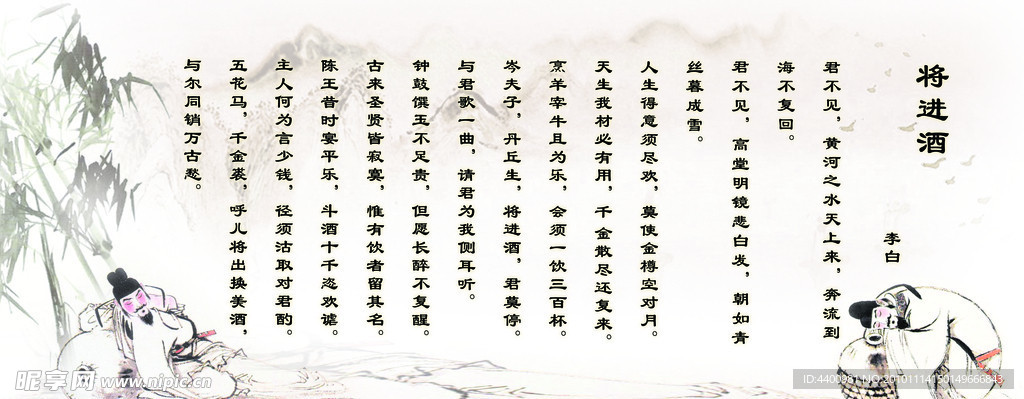 将进酒
李白
君不见，黄河之水天上来，奔流到
海不复回。
君不见，高堂明镜悲白发，朝如青
丝暮成雪。
人生得意须尽欢，莫使金樽空对月。
天生我材必有用，千金散尽还复来。
烹羊宰牛且为乐，会须一饮三百杯。
岑夫子，丹丘生，将进酒，君莫停。
与君歌一曲，请君为我侧耳听。
钟鼓馔玉不足贵，但愿长醉不复醒。
古来圣贤皆寂寞，惟有饮者留其名。
陈王昔时宴平乐，斗酒十千恣欢谑。
主人何为言少钱，径须沽取对君酌。
五花马，千金裘，呼儿将出换美酒，
与尔同销万古愁。
昵享网 www.nipic.cn
ID:4400981 NO:20101114150149666843